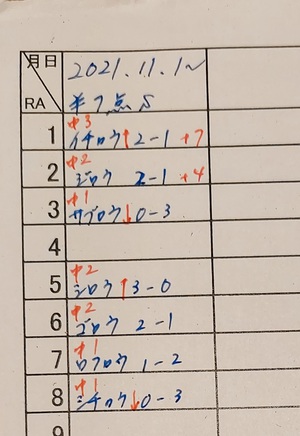 月日
2021.11.1~
RA
1
中3
イチロウ↑2-1 +7
2
中2
ジロウ 2-1 +4
3
中1
サブロウ↓0-3
4
5
中2
シロウ↑3-0
6
中2
ゴロウ 2-1
7
中1
ロクロウ 1-2
8
中1
シチロウ↓0-3
9